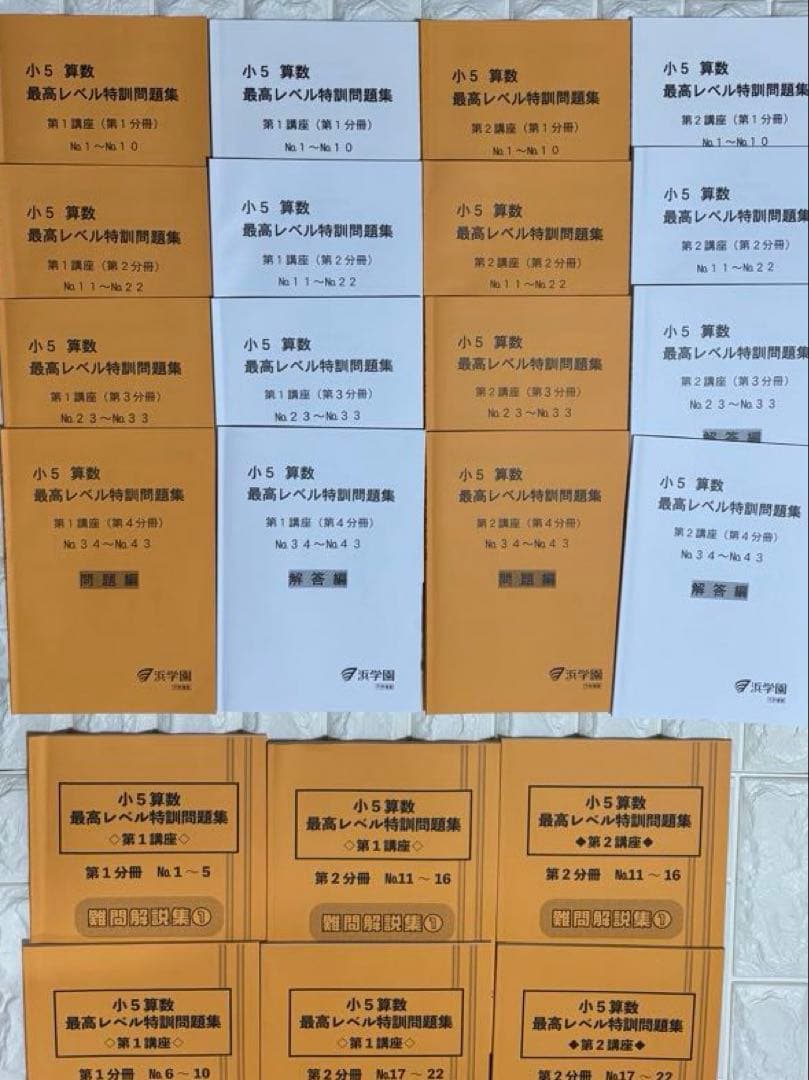 小５ 算数
最高レベル特訓問題集
第１講座（第１分冊）
№１～№１０
小５ 算数
最高レベル特訓問題集
第１講座（第１分冊）
№１～№１０
小５ 算数
最高レベル特訓問題集
第２講座（第１分冊）
№１～№１０
小５ 算数
最高レベル特訓問題集
第２講座（第１分冊）
№１～№１０
小５ 算数
最高レベル特訓問題集
第１講座（第２分冊）
№１１～№２２
小５ 算数
最高レベル特訓問題集
第１講座（第２分冊）
№１１～№２２
小５ 算数
最高レベル特訓問題集
第２講座（第２分冊）
№１１～№２２
小５ 算数
最高レベル特訓問題集
第２講座（第２分冊）
№１１～№２２
小５ 算数
最高レベル特訓問題集
第１講座（第３分冊）
№２３～№３３
小５ 算数
最高レベル特訓問題集
第１講座（第３分冊）
№２３～№３３
小５ 算数
最高レベル特訓問題集
第２講座（第３分冊）
№２３～№３３
小５ 算数
最高レベル特訓問題集
第２講座（第３分冊）
№２３～№３３
解答編
小５ 算数
最高レベル特訓問題集
第１講座（第４分冊）
№３４～№４３
問題編
浜学園
小５ 算数
最高レベル特訓問題集
第１講座（第４分冊）
№３４～№４３
解答編
浜学園
小５ 算数
最高レベル特訓問題集
第２講座（第４分冊）
№３４～№４３
問題編
浜学園
小５ 算数
最高レベル特訓問題集
第２講座（第４分冊）
№３４～№４３
解答編
浜学園
小５算数
最高レベル特訓問題集
◇第１講座◇
第１分冊 №１～５
難問解説集①
小５算数
最高レベル特訓問題集
◇第１講座◇
第２分冊 №11～16
難問解説集①
小５算数
最高レベル特訓問題集
◆第２講座◆
第２分冊 №11～16
難問解説集①
小５算数
最高レベル特訓問題集
◇第１講座◇
第１分冊 №６～10
小５算数
最高レベル特訓問題集
◇第１講座◇
第２分冊 №17～22
小５算数
最高レベル特訓問題集
◆第２講座◆
第２分冊 №17～22